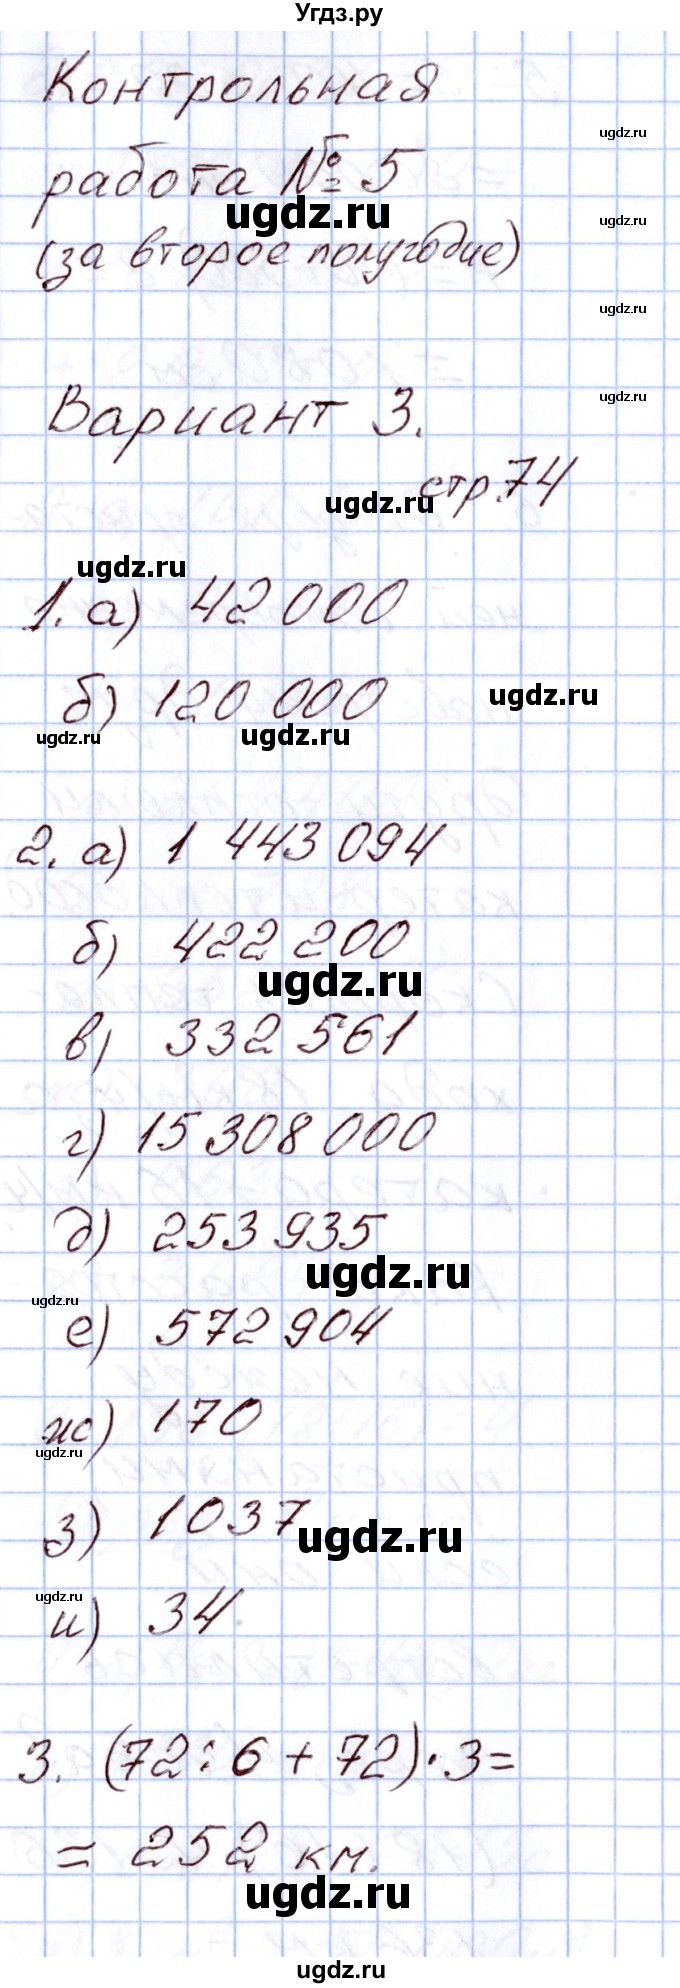 Угдз.ру
Контрольная
ugdz.ru
работа № 5
ugdz.ru
ugdz.ru
(за второе полугодие)
ugdz.ru
ugdz.ru
Вариант 3.
стр.74
ugdz.ru
ugdz.ru
1. а) 42 000
б) 120 000
ugdz.ru
ugdz.ru
ugdz.ru
2. а) 1 443 094
б) 422 200
ugdz.ru
в) 332 561
г) 15 308 000
д) 253 935
ugdz.ru
ugdz.ru
е) 572 904
ж) 170
ugdz.ru
з) 1037
ugdz.ru
ugdz.ru
и) 34
3. (72:6+72)·3=
= 252 км.
ugdz.ru
ugdz.ru